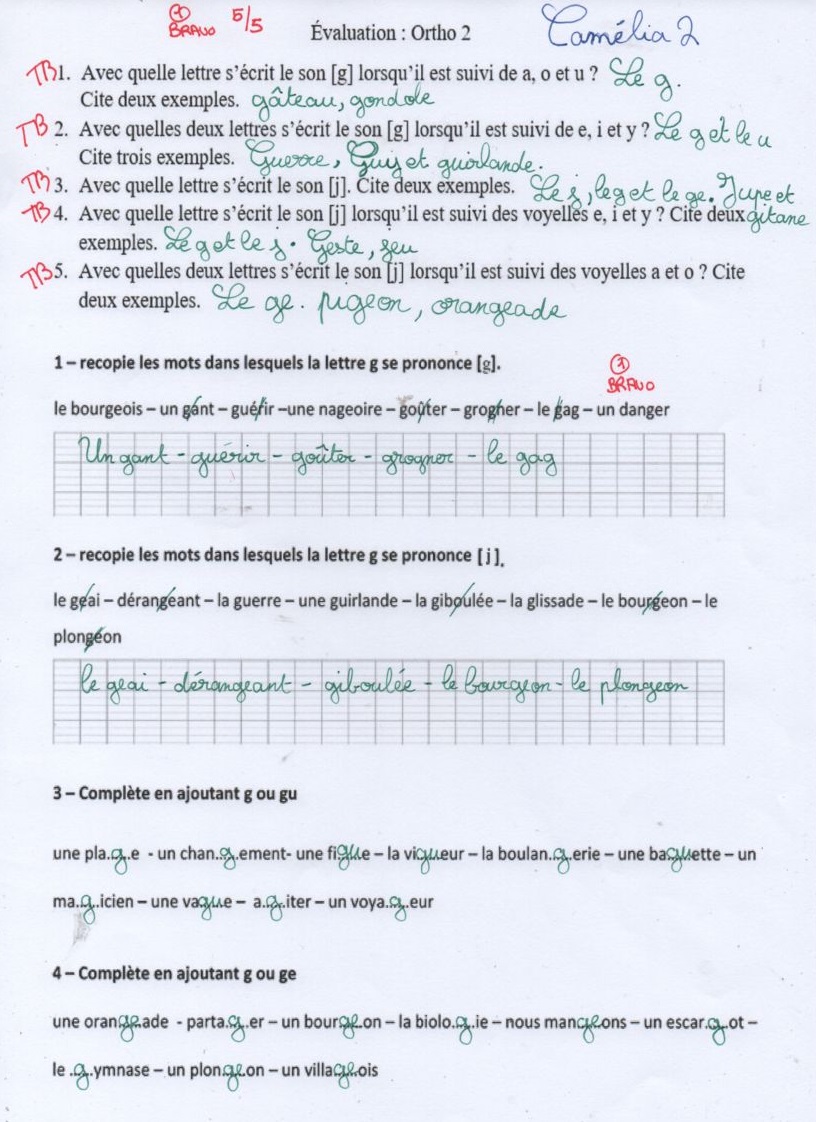 + BRAVO 5/5 Évaluation : Ortho 2 Camélia 2
TB 1. Avec quelle lettre s'écrit le son [g] lorsqu'il est suivi de a, o et u ? Le g.
Cite deux exemples. gâteau, gondole
TB 2. Avec quelles deux lettres s'écrit le son [g] lorsqu'il est suivi de e, i et y ? Le g et le u
Cite trois exemples. Guerre, Guy et guirlande.
TB 3. Avec quelle lettre s'écrit le son [j]. Cite deux exemples. Le j, le g et le ge. Jupe et
TB 4. Avec quelle lettre s'écrit le son [j] lorsqu'il est suivi des voyelles e, i et y ? Cite deux gitane
exemples. Le g et le j. Geste, jeu
TB 5. Avec quelles deux lettres s'écrit le son [j] lorsqu'il est suivi des voyelles a et o ? Cite
deux exemples. Le ge. pigeon, orangeade
1 – recopie les mots dans lesquels la lettre g se prononce [g]. + BRAVO
le bourgeois – un gant – guérir –une nageoire – goûter – grogner – le gag – un danger
Un gant - guérir - goûter - grogner - le gag
2 – recopie les mots dans lesquels la lettre g se prononce [ j ].
le geai – dérangeant – la guerre – une guirlande – la giboulée – la glissade – le bourgeon – le
plongeon
le geai - dérangeant - giboulée - le bourgeon - le plongeon
3 – Complète en ajoutant g ou gu
une pla..g..e - un chan..g..ement- une figue – la vigueur – la boulan..g..erie – une baguette – un
ma..g..icien – une vague – a..g..iter – un voya..g..eur
4 – Complète en ajoutant g ou ge
une orangeade - parta..g..er – un bourgeon – la biolo..g..ie – nous mangeons – un escar..g..ot –
le ..g..ymnase – un plongeon – un villageois